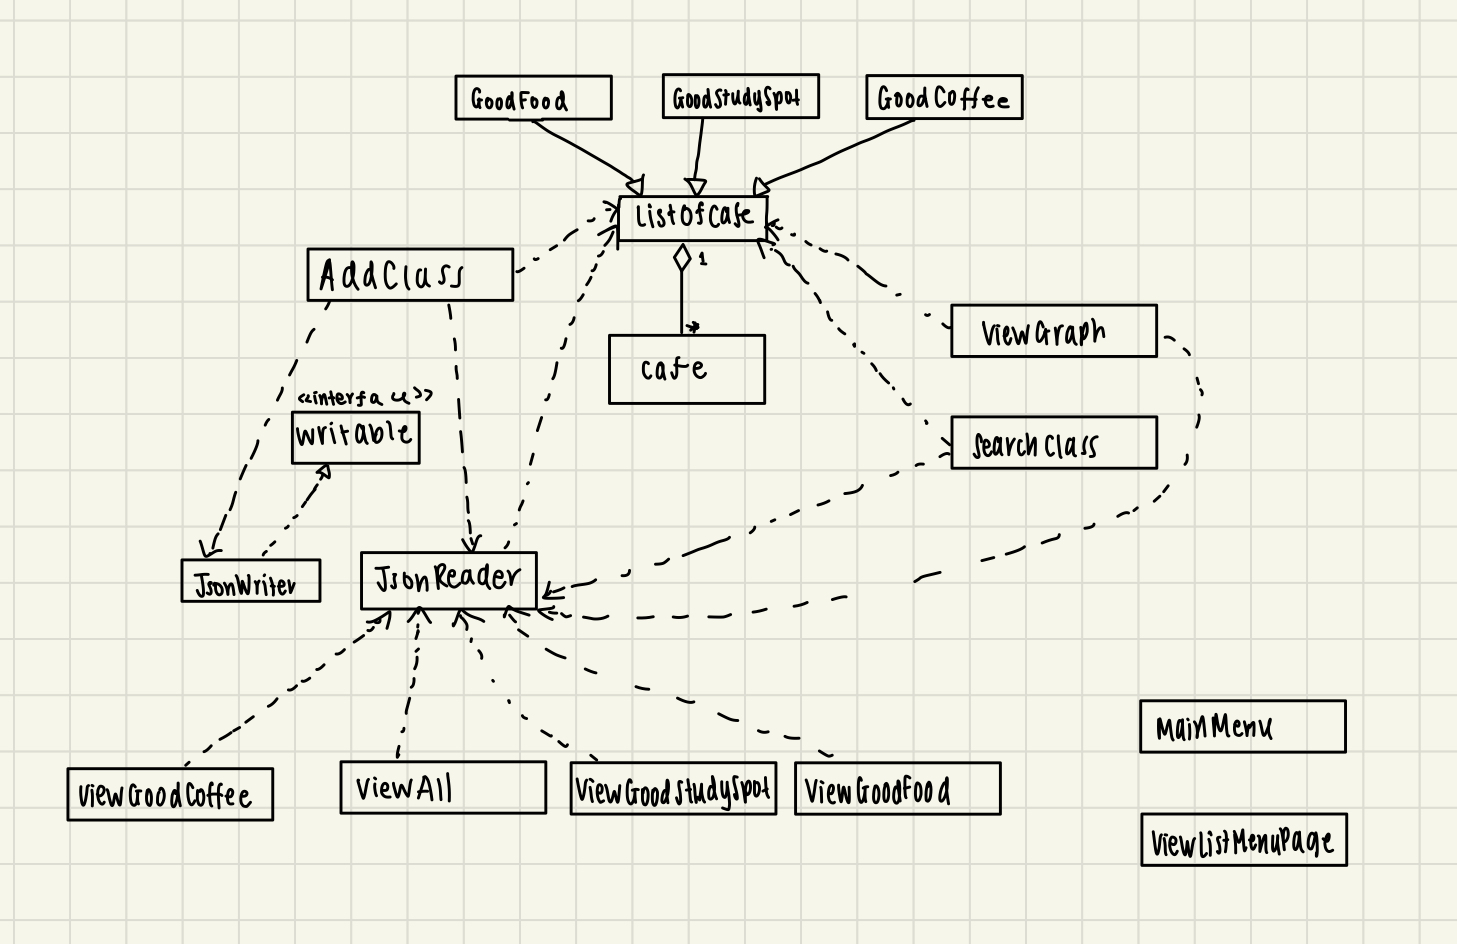 GoodFood
GoodStudySpot
GoodCoffee
ListOfCafe
AddClass
1
*
ViewGraph
cafe
<<interface>>
writable
SearchClass
JsonWriter
JsonReader
MainMenu
ViewGoodCoffee
ViewAll
ViewGoodStudySpot
ViewGoodFood
ViewListMenuPage